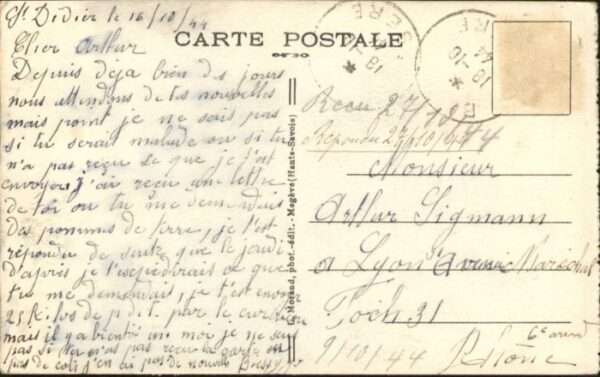 St Didier le 16/10/44
Cher Arthur
Depuis déja bien des jours
nous attendons de tes nouvelles
mais point je ne sais pas
si tu serait malade ou si tu
n'a pas reçu se que je t'ait
envoyer, j'ai reçu une lettre
de toi ou tu me demandais
des pommes de terre, je t'est
répondu de suite que le jeudi
D'après je t'espédirais ce que
tu me demandais, je t'est envoyé
25 kilos de p d t par le
mais il y a bientôt un moi je ne sait
pas si tu n'as pas reçu
pas de coli j'en ai pas de nouvelle
CARTE POSTALE
G. Morand, phot.-édit. - Megève (Haute-Savoie)
18 -10
44
ISERE
Recu 27/10
Repondu 27/10/44
Monsieur
Arthur Sigmann
a Lyon avenue Maréchal
Foch 31
6e arrond
9/10/44 Rhône